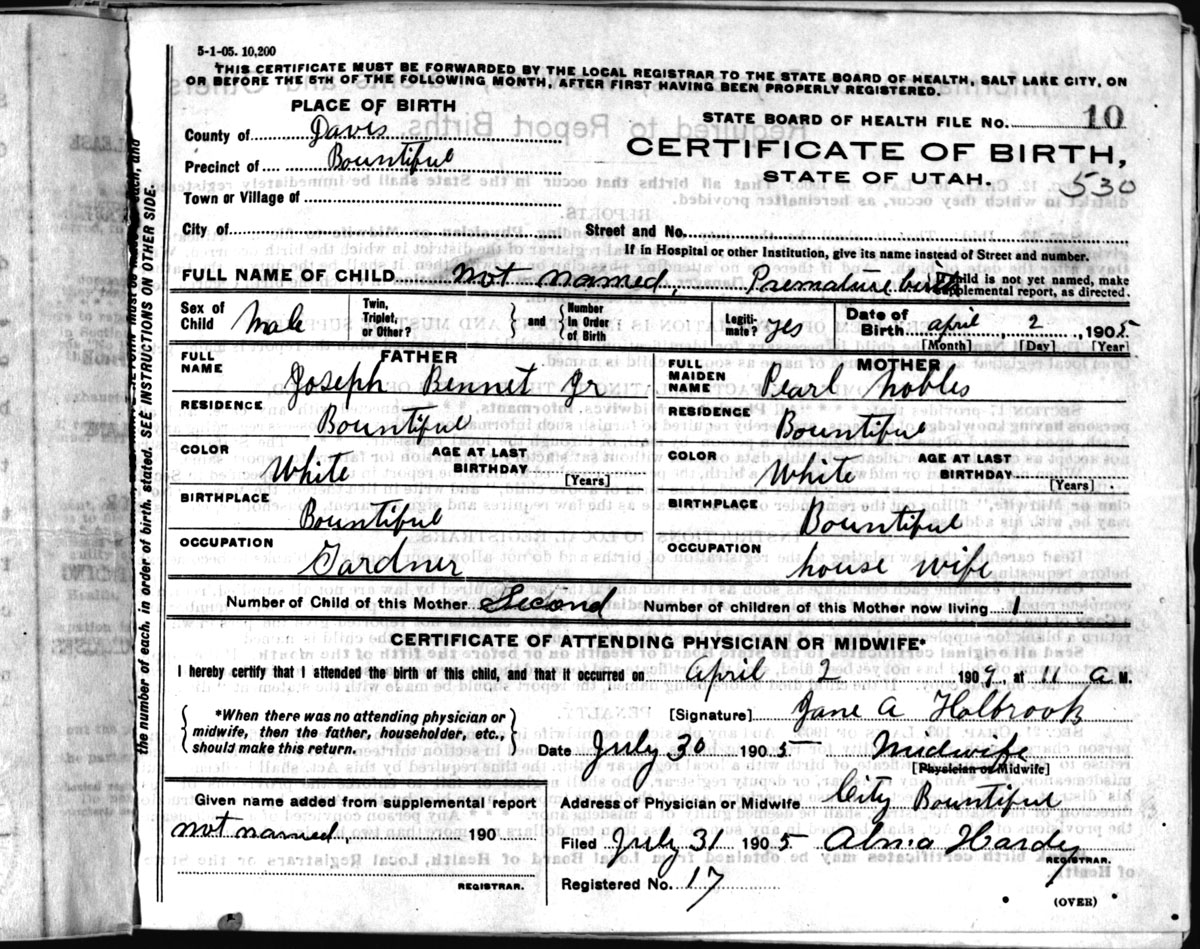 5-1-05. 10,200
THIS CERTIFICATE MUST BE FORWARDED BY THE LOCAL REGISTRAR TO THE STATE BOARD OF HEALTH, SALT LAKE CITY, ON
OR BEFORE THE 5TH OF THE FOLLOWING MONTH, AFTER FIRST HAVING BEEN PROPERLY REGISTERED.
PLACE OF BIRTH
County of Davis
Precinct of Bountiful
Town or Village of
City of
STATE BOARD OF HEALTH FILE NO. 10
CERTIFICATE OF BIRTH,
STATE OF UTAH.
530
Street and No.
If in Hospital or other Institution, give its name instead of Street and number.
FULL NAME OF CHILD not named, Premature birth
child is not yet named, make
supplemental report, as directed.
Sex of Child Male
Twin, Triplet, or Other?
and
Number in Order of Birth
Legiti-mate? yes
Date of Birth april 2, 1905
[Month] [Day] [Year]
FATHER
FULL NAME Joseph Bennet Jr
RESIDENCE Bountiful
COLOR White
AGE AT LAST BIRTHDAY
[Years]
BIRTHPLACE Bountiful
OCCUPATION Gardner
MOTHER
FULL MAIDEN NAME Pearl Nobles
RESIDENCE Bountiful
COLOR White
AGE AT LAST BIRTHDAY
[Years]
BIRTHPLACE Bountiful
OCCUPATION house wife
Number of Child of this Mother Second Number of children of this Mother now living 1
CERTIFICATE OF ATTENDING PHYSICIAN OR MIDWIFE*
I hereby certify that I attended the birth of this child, and that it occurred on april 2 190 , at 11 a M.
*When there was no attending physician or
midwife, then the father, householder, etc.,
should make this return.
[Signature] Jane A Holbrook
Date July 30 1905 Midwife
[Physician or Midwife]
Given name added from supplemental report
not named, 190
REGISTRAR.
Address of Physician or Midwife City Bountiful
Filed July 31 1905 Alma Hardy
REGISTRAR.
Registered No. 17
(OVER)
the number of each, in order of birth, stated. SEE INSTRUCTIONS ON OTHER SIDE.